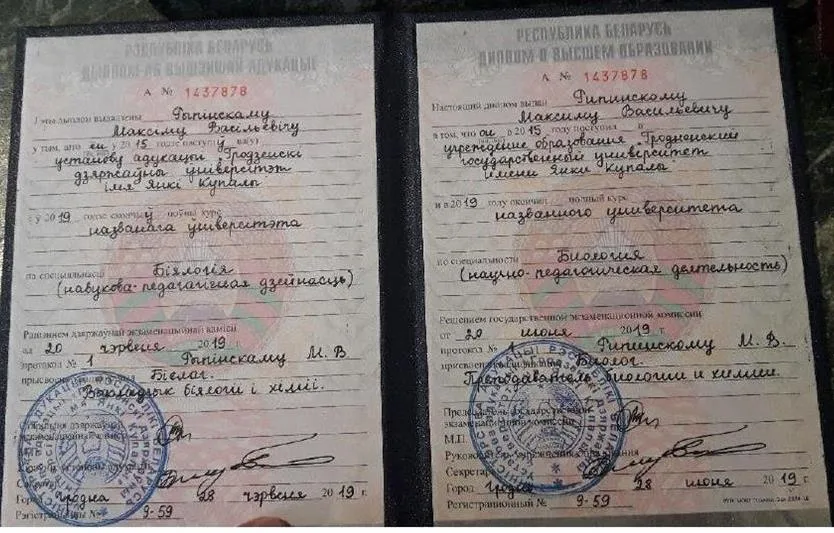 РЭСПУБЛІКА БЕЛАРУСЬ
ДЫПЛОМ АБ ВЫШЭЙШАЙ АДУКАЦЫІ
А № 1437878
Гэты дыплом выдадзены Рыпінскаму
Максіму Васільевічу
у тым, што ён у 2015 годзе паступіў ва(у)
установу адукацыі "Гродзенскі
дзяржаўны ўніверсітэт
імя Янкі Купалы"
і ў 2019 годзе скончыў поўны курс
названага ўніверсітэта
па спецыяльнасці Біялогія
(навукова-педагагічная дзейнасць)
Рашэннем дзяржаўнай экзаменацыйнай камісіі
ад 20 чэрвеня 2019 г.
пратакол № 1 Рыпінскаму М. В.
прысвоена Біёлаг.
Выкладчык біялогіі і хіміі.
Сакратар
Горад Гродна 28 чэрвеня 2019 г.
Рэгістрацыйны № 9-59
РЕСПУБЛИКА БЕЛАРУСЬ
ДИПЛОМ О ВЫСШЕМ ОБРАЗОВАНИИ
А № 1437878
Настоящий диплом выдан Рипинскому
Максиму Васильевичу
в том, что он в 2015 году поступил в
учреждение образования "Гродненский
государственный университет
имени Янки Купалы"
и в 2019 году окончил полный курс
названного университета
по специальности Биология
(научно-педагогическая деятельность)
Решением государственной экзаменационной комиссии
от 20 июня 2019 г.
протокол № 1 Рипинскому М. В.
присвоена Биолог.
Преподаватель биологии и химии.
Председатель государственной
экзаменационной комиссии
М.П.
Руководитель учреждения образования
Секретарь
Город Гродно 28 июня 2019 г.
Регистрационный № 9-59